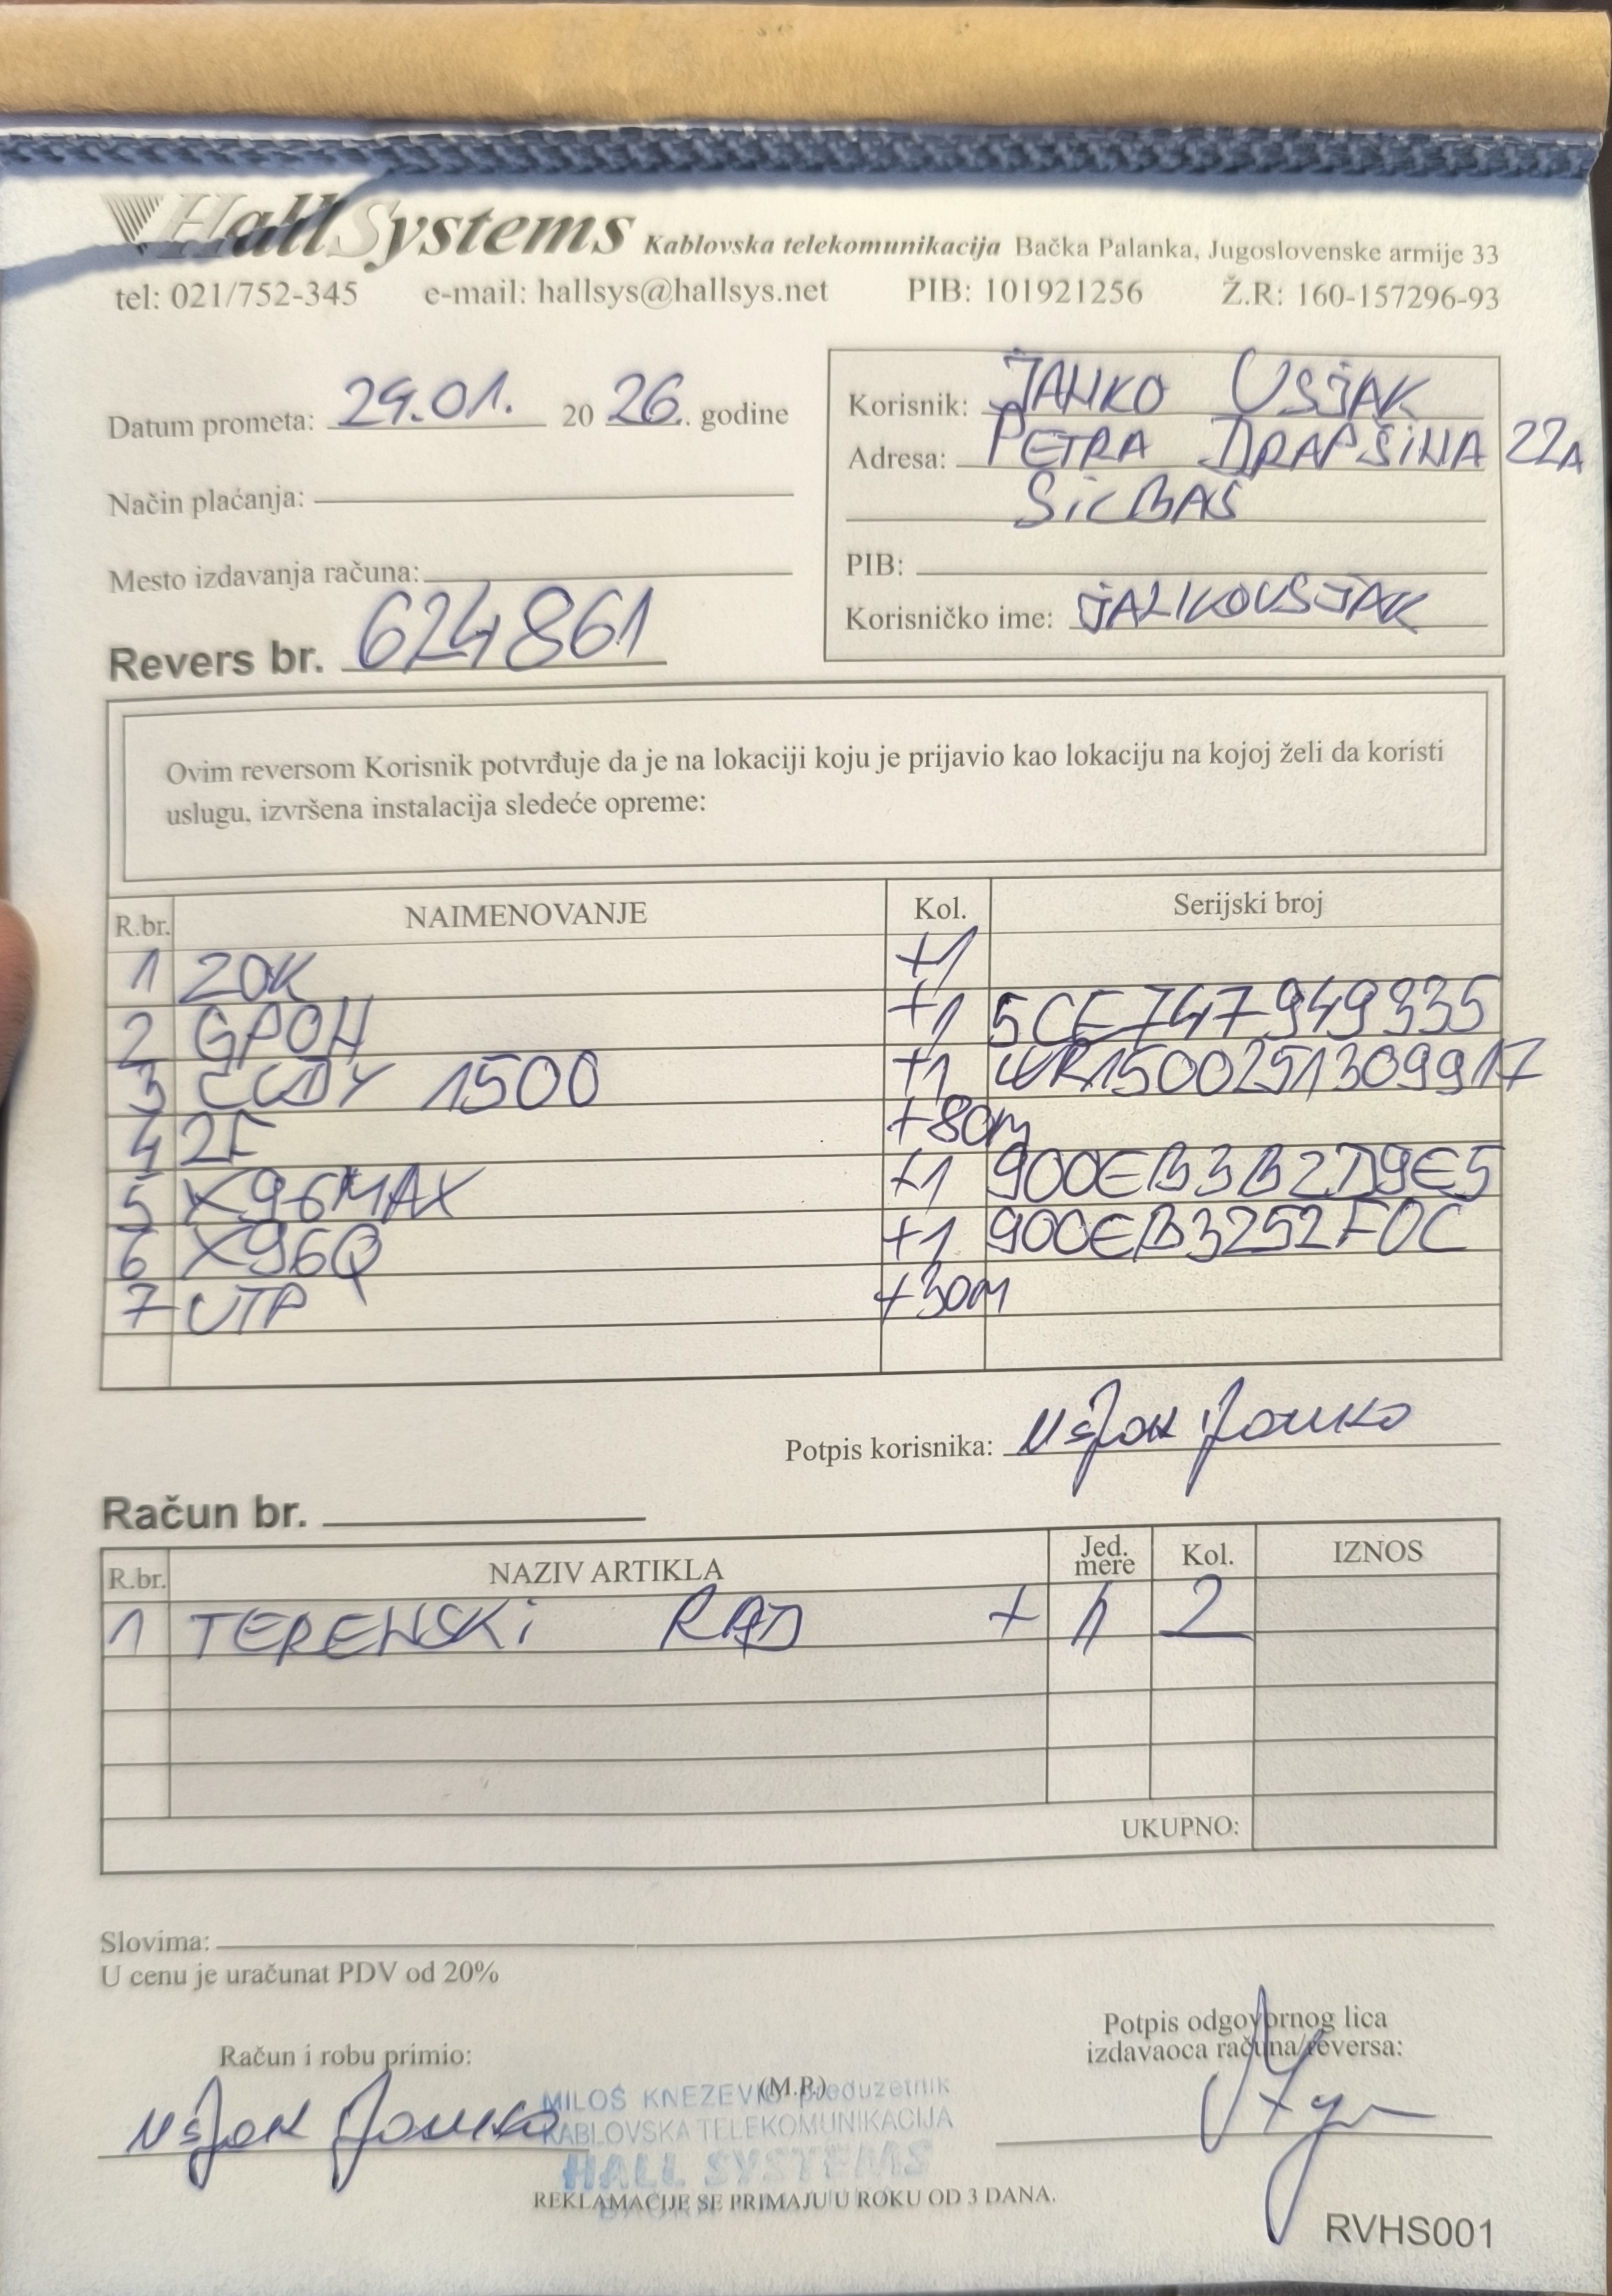 HallSystems Kablovska telekomunikacija Bačka Palanka, Jugoslovenske armije 33
tel: 021/752-345 e-mail: hallsys@hallsys.net PIB: 101921256 Ž.R: 160-157296-93
Datum prometa: 29.01. 20 26. godine
Način plaćanja:
Mesto izdavanja računa:
Revers br. 624861
Korisnik: JANKO USJAK
Adresa: PETRA DRAPŠINA 22A
SILBAŠ
PIB:
Korisničko ime: JANKOUSJAK
Ovim reversom Korisnik potvrđuje da je na lokaciji koju je prijavio kao lokaciju na kojoj želi da koristi
uslugu, izvršena instalacija sledeće opreme:
R.br. NAIMENOVANJE Kol. Serijski broj
1 ZOK +1
2 GPON +1 5CE747949335
3 CUDY 1500 +1 WR1500251309917
4 2F +80m
5 X96MAX +1 900EB3B2D9E5
6 X96Q +1 900EB3252F0C
7 UTP +30m
Potpis korisnika: Usjak Janko
Račun br.
R.br. NAZIV ARTIKLA Jed. mere Kol. IZNOS
1 TERENSKI RAD + h 2
UKUPNO:
Slovima:
U cenu je uračunat PDV od 20%
Račun i robu primio:
Usjak Janko
(M.P.)
MILOŠ KNEZEVIĆ preduzetnik
KABLOVSKA TELEKOMUNIKACIJA
HALL SYSTEMS
Potpis odgovornog lica
izdavaoca računa/reversa:
REKLAMACIJE SE PRIMAJU U ROKU OD 3 DANA.
RVHS001